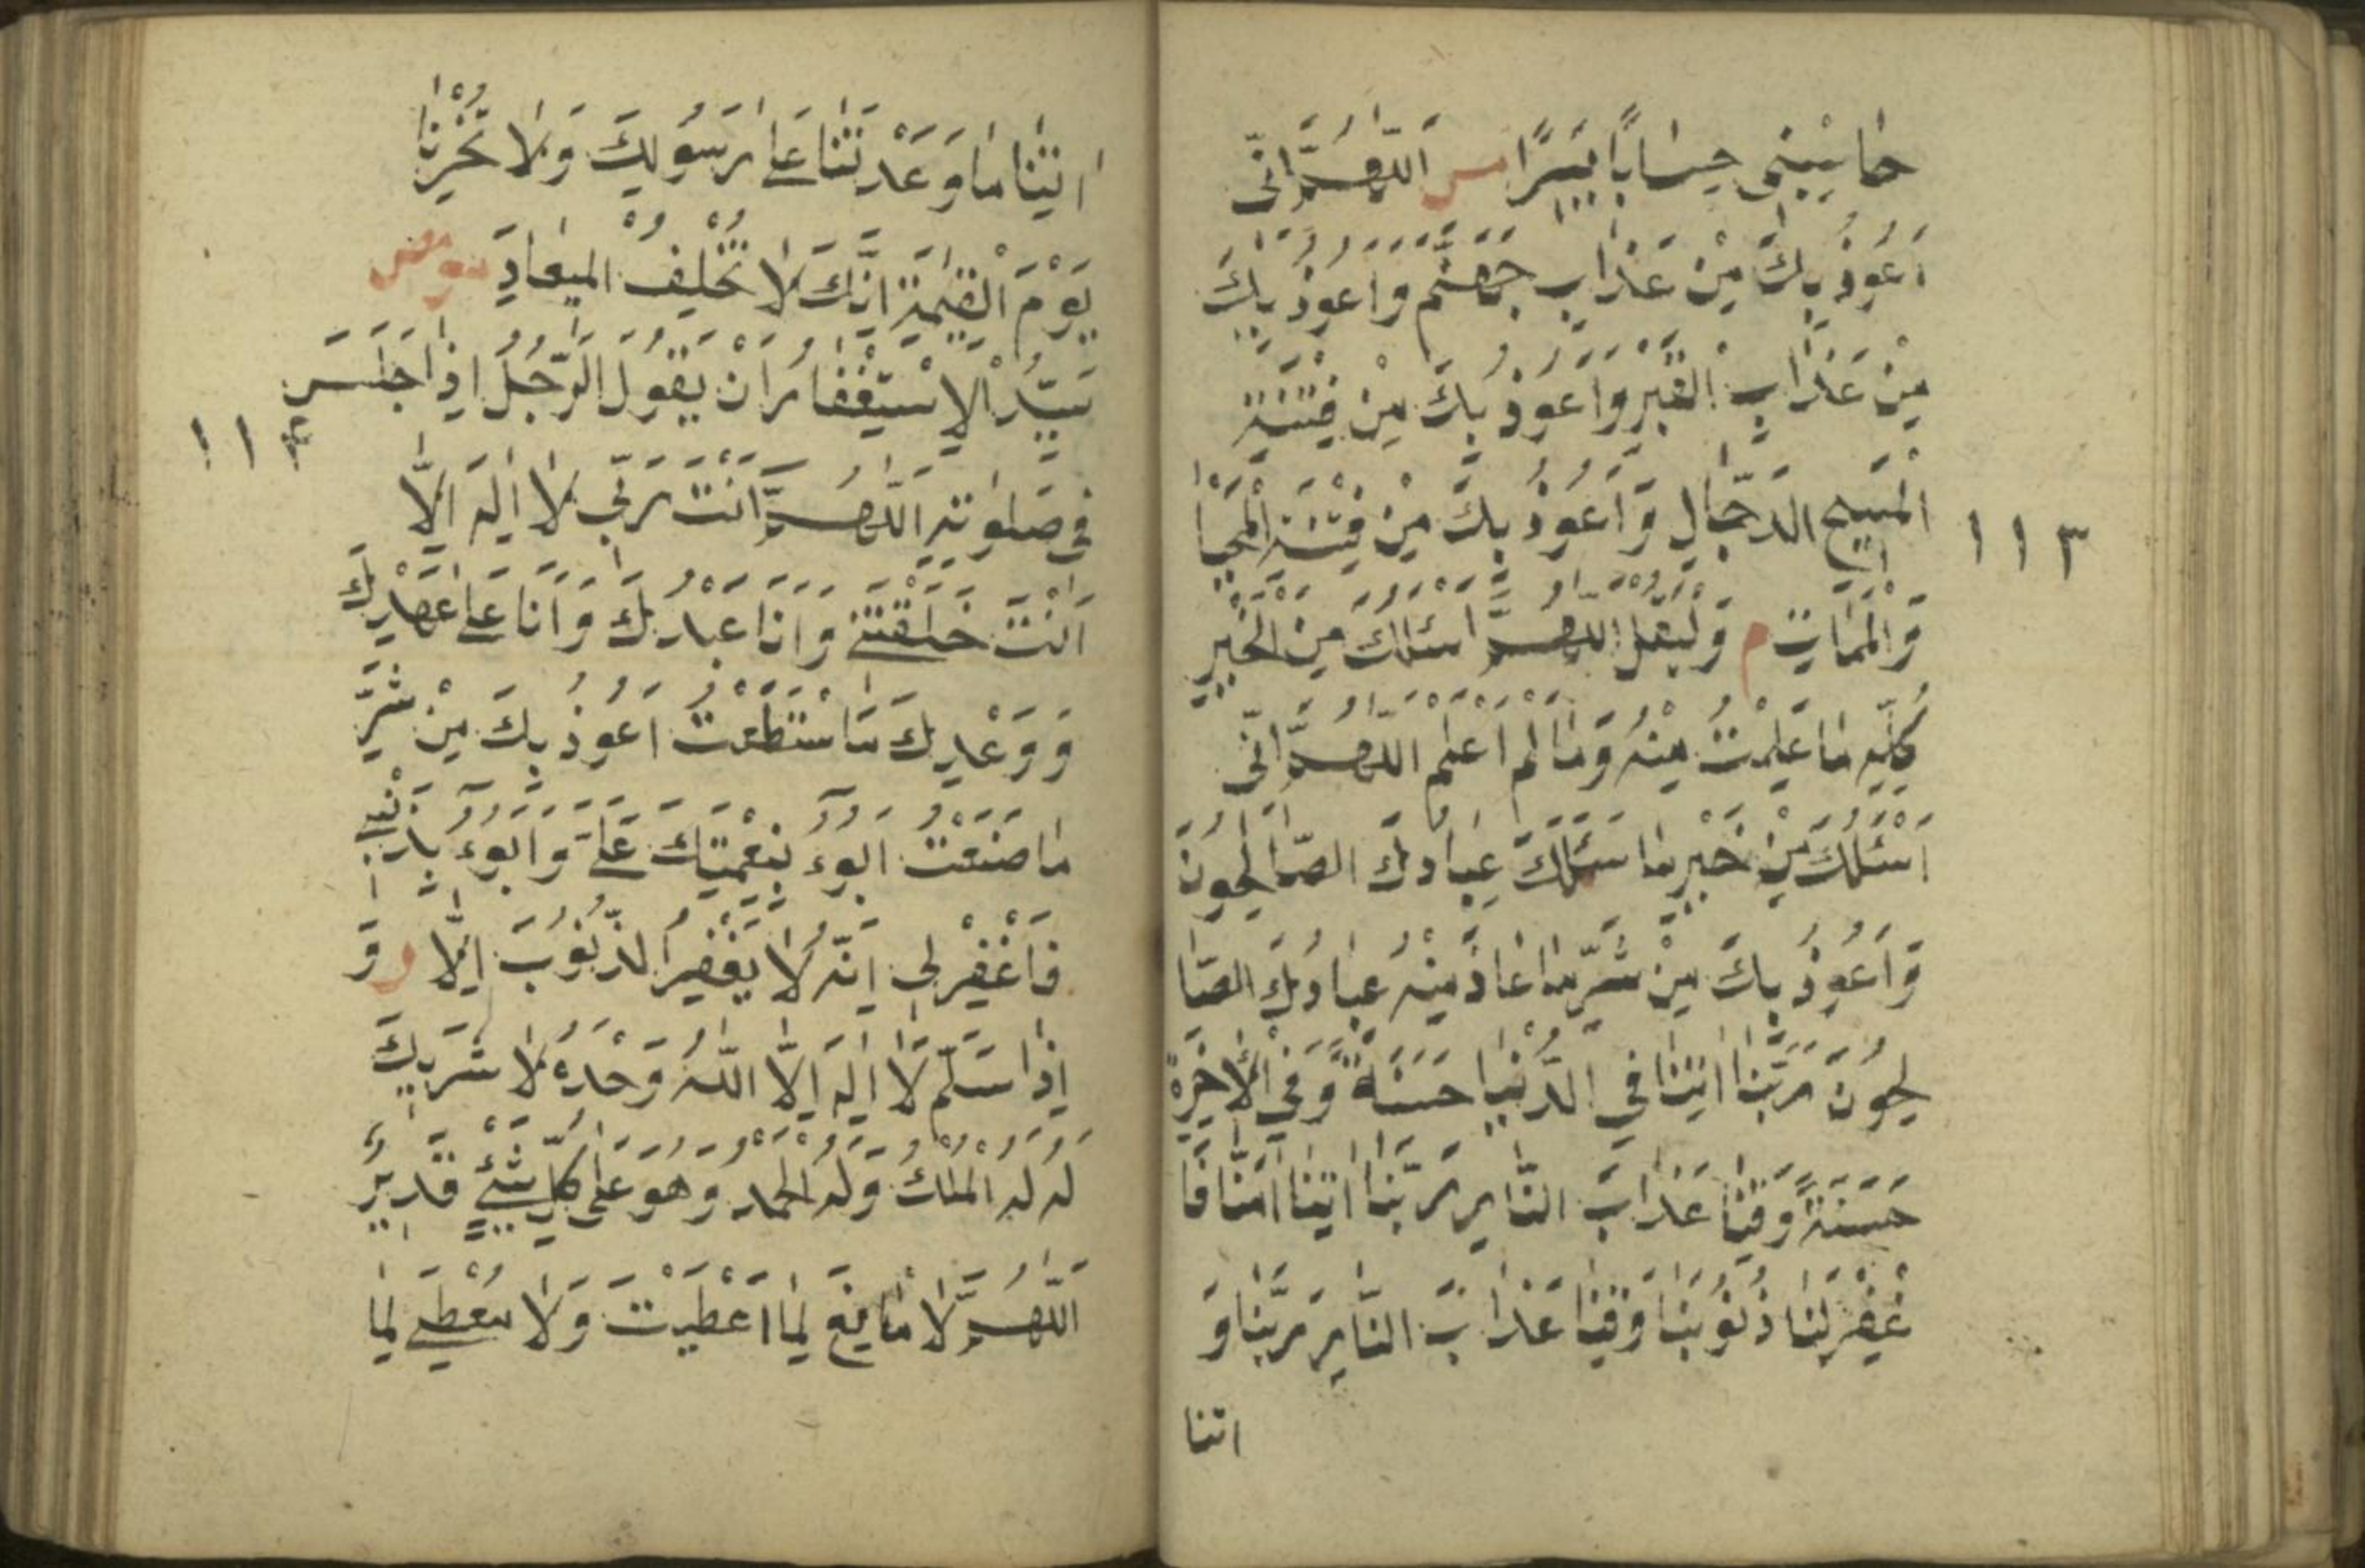 حَاسِبْنِى حِسَابًا يَسِيرًا مس اَللّٰهُمَّ اِنِّى
اَعُوذُ بِكَ مِنْ عَذَابِ جَهَنَّمَ وَاَعُوذُ بِكَ
مِنْ عَذَابِ الْقَبْرِ وَاَعُوذُ بِكَ مِنْ فِتْنَةِ
الْمَسِيحِ الدَّجَّالِ وَاَعُوذُ بِكَ مِنْ فِتْنَةِ الْمَحْيَا
١١٣
وَالْمَمَاتِ م وَلْيَقُلْ اللّٰهُمَّ اَسْئَلُكَ مِنَ الْخَيْرِ
كُلِّهِ مَا عَلِمْتُ مِنْهُ وَمَا لَمْ اَعْلَمْ اَللّٰهُمَّ اِنِّى
اَسْئَلُكَ مِنْ خَيْرِ مَا سَئَلَكَ عِبَادُكَ الصَّالِحُونَ
وَاَعُوذُ بِكَ مِنْ شَرِّ مَا عَاذَ مِنْهُ عِبَادُكَ الصَّا
لِحُونَ رَبَّنَا اٰتِنَا فِي الدُّنْيَا حَسَنَةً وَفِي الْاٰخِرَةِ
حَسَنَةً وَقِنَا عَذَابَ النَّارِ رَبَّنَا اِنَّنَا اٰمَنَّا فَا
غْفِرْ لَنَا ذُنُوبَنَا وَقِنَا عَذَابَ النَّارِ رَبَّنَا وَ
اتنا
اٰتِنَا مَا وَعَدْتَنَا عَلٰى رَسُولِكَ وَلَا تُخْزِنَا
يَوْمَ الْقِيٰمَةِ اِنَّكَ لَا تُخْلِفُ الْمِيعَادَ مو مص
سَيِّدُ الْاِسْتِغْفَارِ اَنْ يَقُولَ الرَّجُلُ اِذَا جَلَسَ
١١٤
فِى صَلٰوتِهِ اَللّٰهُمَّ اَنْتَ رَبِّى لَا اِلٰهَ اِلَّا
اَنْتَ خَلَقْتَنِى وَاَنَا عَبْدُكَ وَاَنَا عَلٰى عَهْدِكَ
وَوَعْدِكَ مَا اسْتَطَعْتُ اَعُوذُ بِكَ مِنْ شَرِّ
مَا صَنَعْتُ اَبُوءُ بِنِعْمَتِكَ عَلَىَّ وَاَبُوءُ بِذَنْبِى
فَاغْفِرْ لِى اِنَّهُ لَا يَغْفِرُ الذُّنُوبَ اِلَّا ر وَ
اِذَا سَلَّمَ لَا اِلٰهَ اِلَّا اللّٰهُ وَحْدَهُ لَا شَرِيكَ
لَهُ لَهُ الْمُلْكُ وَلَهُ الْحَمْدُ وَهُوَ عَلٰى كُلِّ شَيْءٍ قَدِيرٌ
اَللّٰهُمَّ لَا مَانِعَ لِمَا اَعْطَيْتَ وَلَا مُعْطِىَ لِمَا